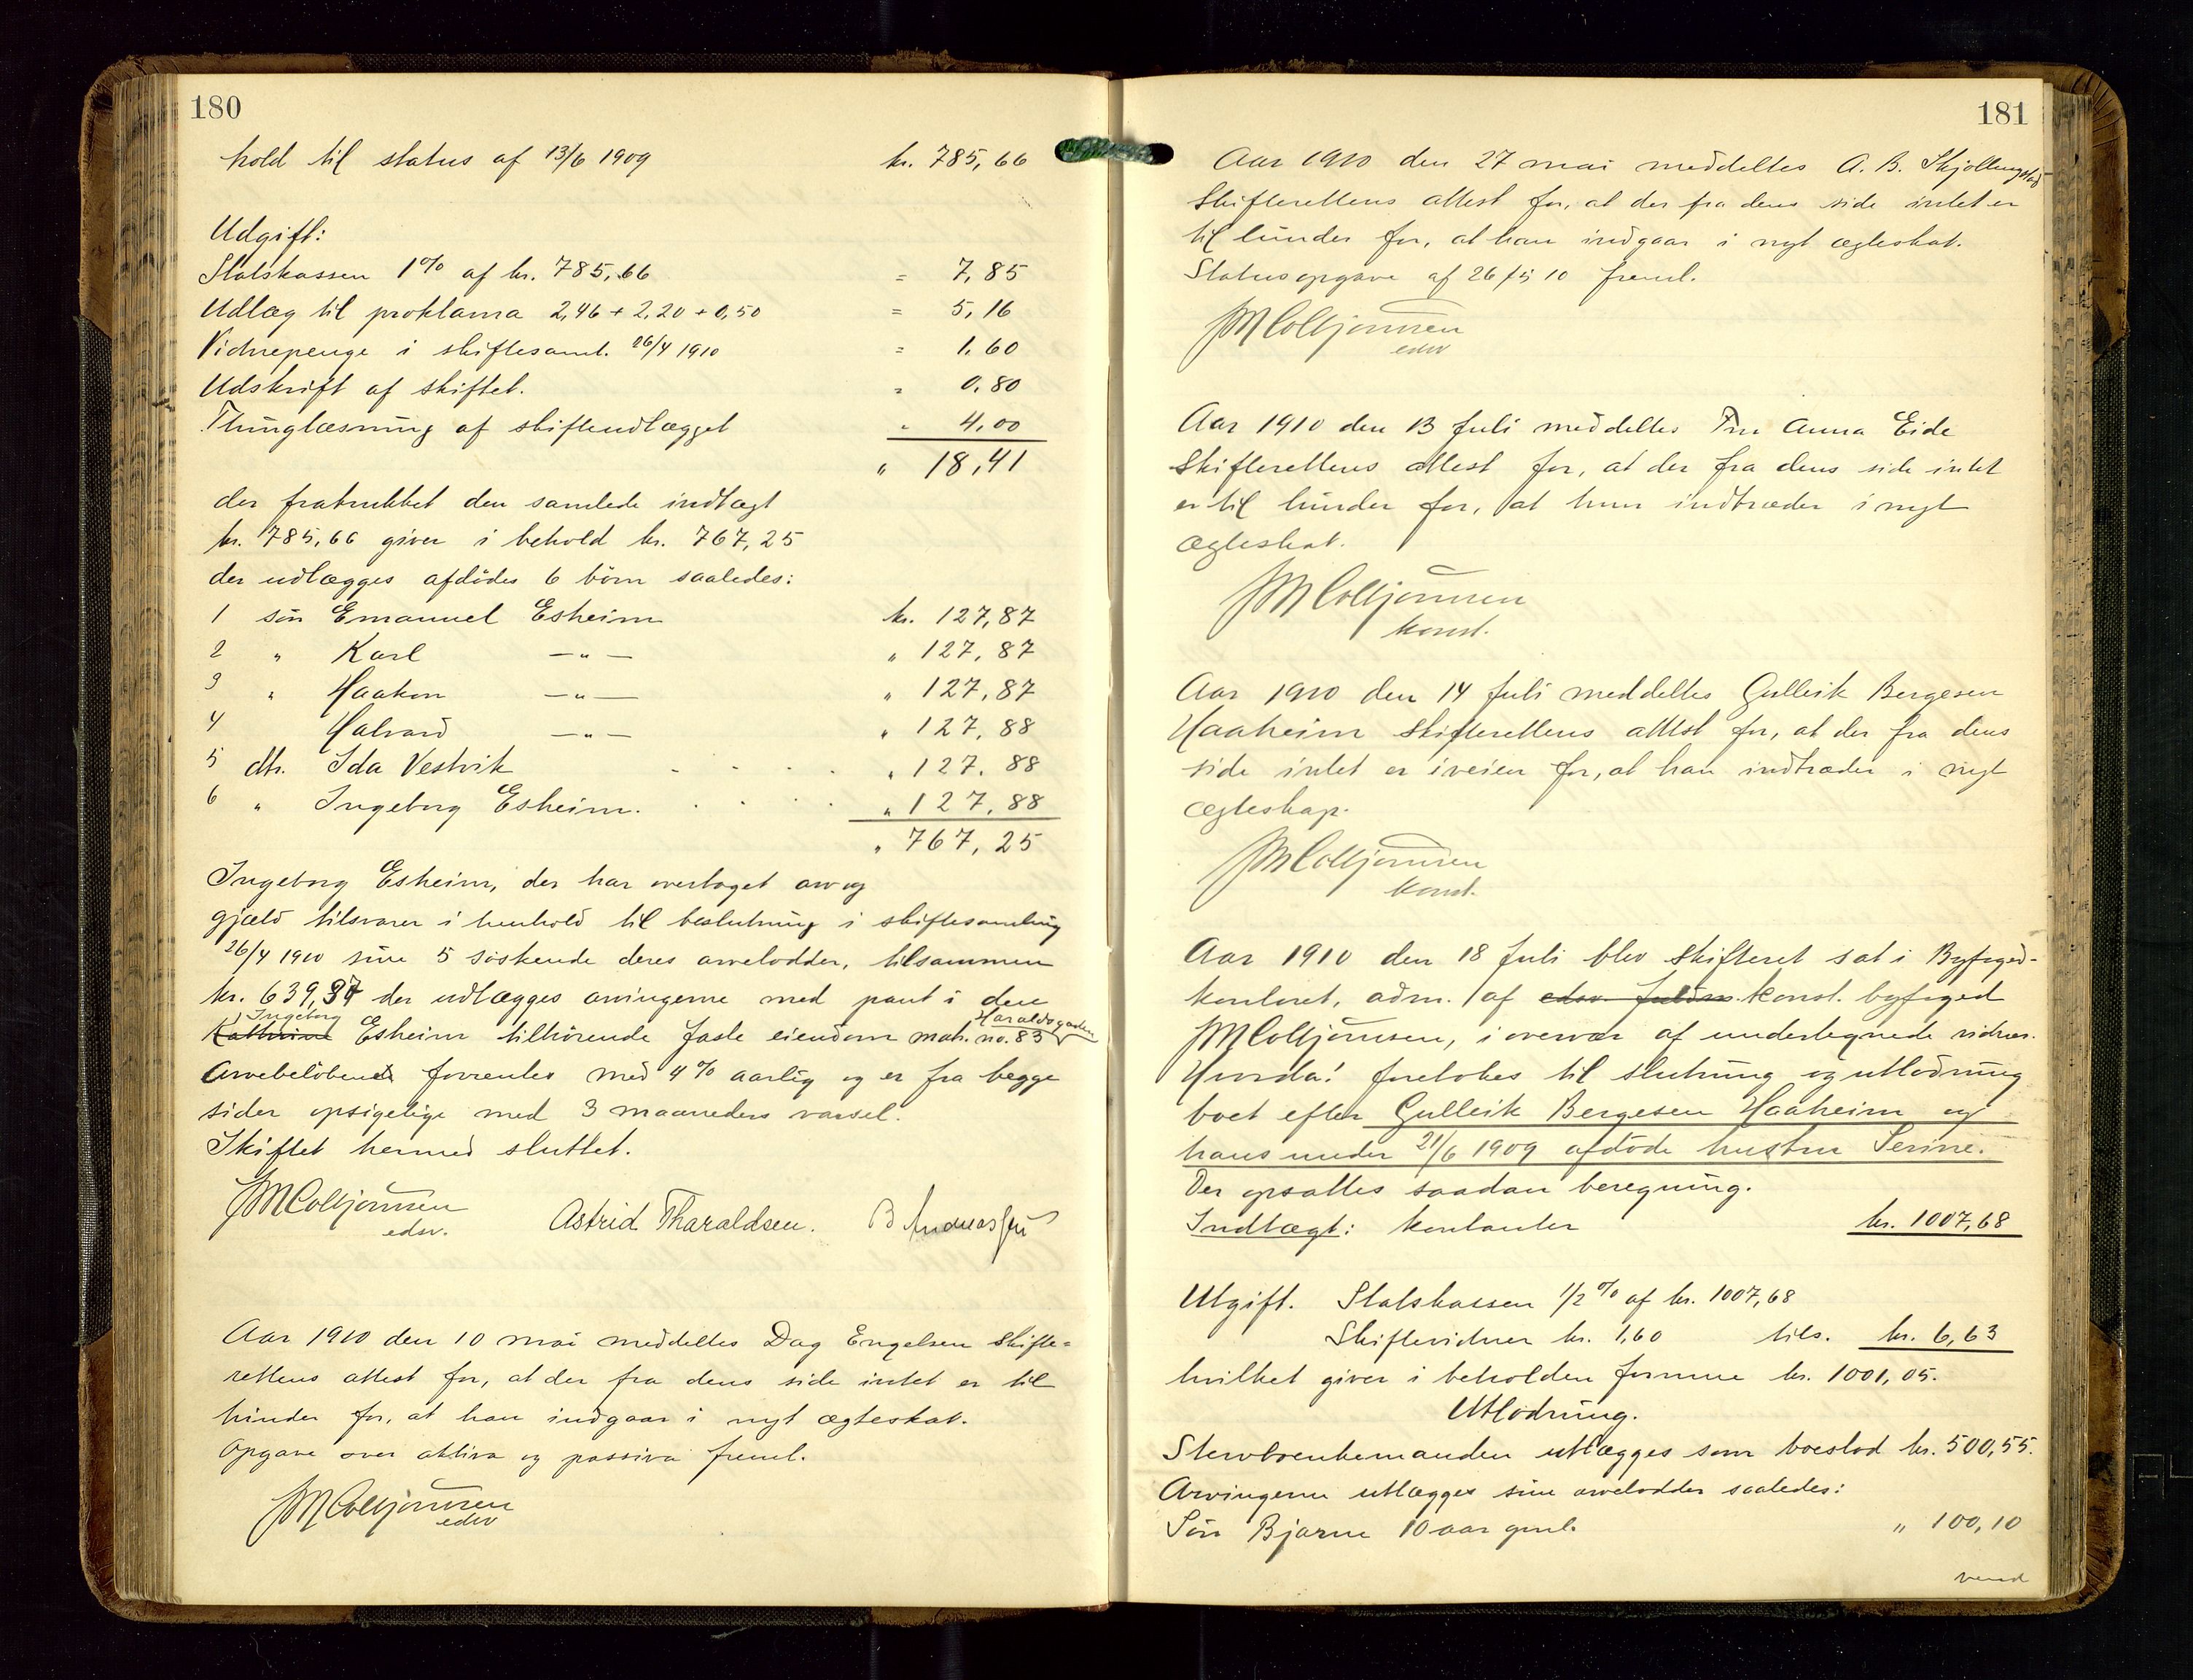 180
hold til status af 13/6 1909 kr. 785,66
Udgift:
Statskassen 1% af kr. 785,66 = 7,85
Udlæg til proklama 2,46 + 2,20 + 0,50 = 5,16
Vidnepenge i skiftesaml. 26/4 1910 = 1.60
Udskrift af skiftet. " 0.80
Thinglæsning af skifteudlægget " 4,00
" 18,41
der fratrukket den samlede indtægt
kr. 785,66 giver i behold kr. 767,25
der udlægges afdødes 6 børn saaledes:
1 søn Emanuel Esheim kr. 127,87
2 " Karl —"— " 127,87
3 " Haakon —"— " 127,87
4 Halvard —"— " 127,88
5 dtr. Ida Vestvik . . . . " 127.88
6 " Ingeborg Esheim. . . . . " 127,88
" 767,25
Ingeborg Esheim, der har overtaget arv og
gjæld tilsvarer i henhold til beslutning i skiftesamling
26/4 1910 sine 5 søskende deres arvelodder, tilsammen
kr. 639,37 der udlægges arvingerne med pant i den
Ingeborg Haraldsgaden
Kathrine Esheim tilhørende faste eiendom matr. no. 83
Arvebeløbene forrentes med 4% aarlig og er fra begge
sider opsigelige med 3 maaneders varsel.
Skiftet hermed sluttet.
JM Colbjørnsen Astrid Tharaldsen. B Andreassen
edsv.
Aar 1910 den 10 mai meddeltes Dag Engelsen skifte-
rettens attest for, at der fra dens side intet er til
hinder for, at han indgaar i nyt ægteskab.
Opgave over aktiva og passiva freml.
JM Colbjørnsen
edsv
181
Aar 1910 den 27 mai meddeltes A. B. Skjollingstad
Skifterettens attest for, at der fra dens side intet er
til hinder for, at han indgaar i nyt ægteskab.
Statusopgave af 26/5 10 freml.
JM Colbjørnsen
edsv
Aar 1910 den 13 Juli meddeltes Fru Anna Eide
Skifterettens attest for, at der fra dens side intet
er til hinder for, at hun indtræder i nyt
ægteskab.
JM Colbjørnsen
konst.
Aar 1910 den 14 Juli meddeltes Gulleik Bergesen
Haaheim skifterettens attest for, at der fra dens
side intet er iveien for, at han indtræder i nyt
ægteskap.
JM Colbjørnsen
konst.
Aar 1910 den 18 Juli blev skifteret sat i Byfoged-
kontoret, adm. af edsv. fuldm. konst. byfoged
JM Colbjørnsen, i overvær af undertegnede vidner.
Hvorda! foretokes til slutning og utlodning
boet efter Gulleik Bergesen Haaheim og
hans under 21/6 1909 afdøde hustru Serine.
Der opsattes saadan beregning.
Indtægt: kontanter kr. 1007,68
Utgift. Statskassen 1/2 % af kr. 1007,68
Skiftevidner kr. 1,60 tils. kr. 6,63
hvilket giver i beholden formue kr. 1001,05.
Utlodning.
Stervboenkemanden utlægges som boeslod kr. 500,55.
Arvingerne utlægges sine arvelodder saaledes:
Søn Bjarne 10 aar gml. " 100,10
vend